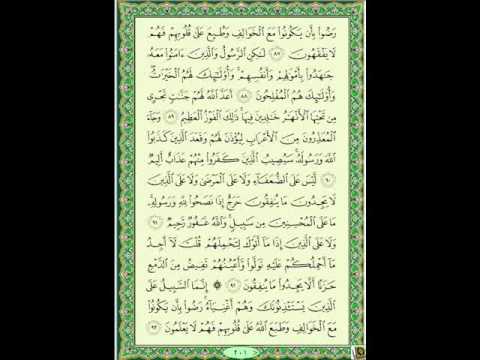 رَضُوا۟ بِأَن يَكُونُوا۟ مَعَ ٱلْخَوَالِفِ وَطُبِعَ عَلَىٰ قُلُوبِهِمْ فَهُمْ
لَا يَفْقَهُونَ ٨٧ لَٰكِنِ ٱلرَّسُولُ وَٱلَّذِينَ ءَامَنُوا۟ مَعَهُۥ
جَٰهَدُوا۟ بِأَمْوَٰلِهِمْ وَأَنفُسِهِمْ ۚ وَأُو۟لَٰٓئِكَ لَهُمُ ٱلْخَيْرَٰتُ ۖ
وَأُو۟لَٰٓئِكَ هُمُ ٱلْمُفْلِحُونَ ٨٨ أَعَدَّ ٱللَّهُ لَهُمْ جَنَّٰتٍ تَجْرِى
مِن تَحْتِهَا ٱلْأَنْهَٰرُ خَٰلِدِينَ فِيهَا ۚ ذَٰلِكَ ٱلْفَوْزُ ٱلْعَظِيمُ ٨٩ وَجَآءَ
ٱلْمُعَذِّرُونَ مِنَ ٱلْأَعْرَابِ لِيُؤْذَنَ لَهُمْ وَقَعَدَ ٱلَّذِينَ كَذَبُوا۟
ٱللَّهَ وَرَسُولَهُۥ ۚ سَيُصِيبُ ٱلَّذِينَ كَفَرُوا۟ مِنْهُمْ عَذَابٌ أَلِيمٌ
٩٠ لَّيْسَ عَلَى ٱلضُّعَفَآءِ وَلَا عَلَى ٱلْمَرْضَىٰ وَلَا عَلَى ٱلَّذِينَ
لَا يَجِدُونَ مَا يُنفِقُونَ حَرَجٌ إِذَا نَصَحُوا۟ لِلَّهِ وَرَسُولِهِۦ ۚ
مَا عَلَى ٱلْمُحْسِنِينَ مِن سَبِيلٍ ۚ وَٱللَّهُ غَفُورٌ رَّحِيمٌ ٩١
وَلَا عَلَى ٱلَّذِينَ إِذَا مَآ أَتَوْكَ لِتَحْمِلَهُمْ قُلْتَ لَآ أَجِدُ
مَآ أَحْمِلُكُمْ عَلَيْهِ تَوَلَّوا۟ وَّأَعْيُنُهُمْ تَفِيضُ مِنَ ٱلدَّمْعِ
حَزَنًا أَلَّا يَجِدُوا۟ مَا يُنفِقُونَ ٩٢ ۞ إِنَّمَا ٱلسَّبِيلُ عَلَى
ٱلَّذِينَ يَسْتَـْٔذِنُونَكَ وَهُمْ أَغْنِيَآءُ ۚ رَضُوا۟ بِأَن يَكُونُوا۟
مَعَ ٱلْخَوَالِفِ وَطَبَعَ ٱللَّهُ عَلَىٰ قُلُوبِهِمْ فَهُمْ لَا يَعْلَمُونَ ٩٣
٢٠١